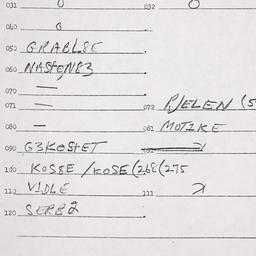 031 0 032 0
040 0
050 GRABL8E
060 NASTEN83
070 —
071 — 072 PJELEN (5
080 — 081 MOTIKE
090 G3KOSTET
100 KOS8E / KOSE (268 (275
110 VIDLE 111
120 SERB2